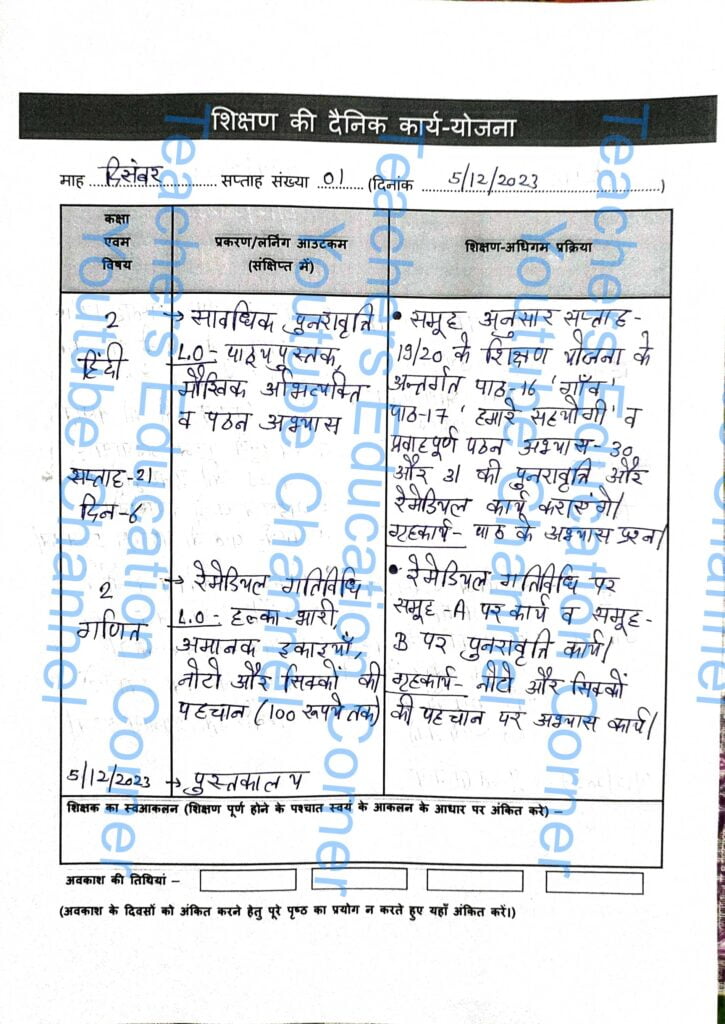 शिक्षण की दैनिक कार्य-योजना
माह ....दिसंबर.... सप्ताह संख्या ..01.. (दिनांक ....5/12/2023....)
कक्षा
एवम
विषय
प्रकरण/लर्निंग आउटकम
(संक्षिप्त में)
शिक्षण-अधिगम प्रक्रिया
2
हिंदी
सप्ताह-21
दिन-6
→ सावधिक पुनरावृत्ति
L.O- पाठ्यपुस्तक,
मौखिक अभिव्यक्ति
व पठन अभ्यास
• समूह अनुसार सप्ताह-
19/20 के शिक्षण योजना के
अन्तर्गत पाठ-16 'गाँव'
पाठ-17 'हमारे सहयोगी' व
प्रवाहपूर्ण पठन अभ्यास-30
और 31 की पुनरावृत्ति और
रेमेडियल कार्य करासंगे।
गृहकार्य- पाठ के अभ्यास प्रश्न।
2
गणित
→ रेमेडियल गतिविधि
L.O- हल्का-भारी,
अमानक इकाइयाँ,
नोटो और सिक्कों की
पहचान (100 रूपये तक)
• रेमेडियल गतिविधि पर
समूह-A पर कार्य व समूह-
B पर पुनरावृत्ति कार्य।
गृहकार्य- नोटो और सिक्कों
की पहचान पर अभ्यास कार्य।
5/12/2023 → पुस्तकालय
शिक्षक का स्वआकलन (शिक्षण पूर्ण होने के पश्चात स्वयं के आकलन के आधार पर अंकित करे) –
अवकाश की तिथियां –
(अवकाश के दिवसों को अंकित करने हेतु पूरे पृष्ठ का प्रयोग न करते हुए यहाँ अंकित करें।)
Teachers Education Corner
Youtube Channel
Teachers Education Corner
Youtube Channel
Teachers Education Corner
Youtube Channel